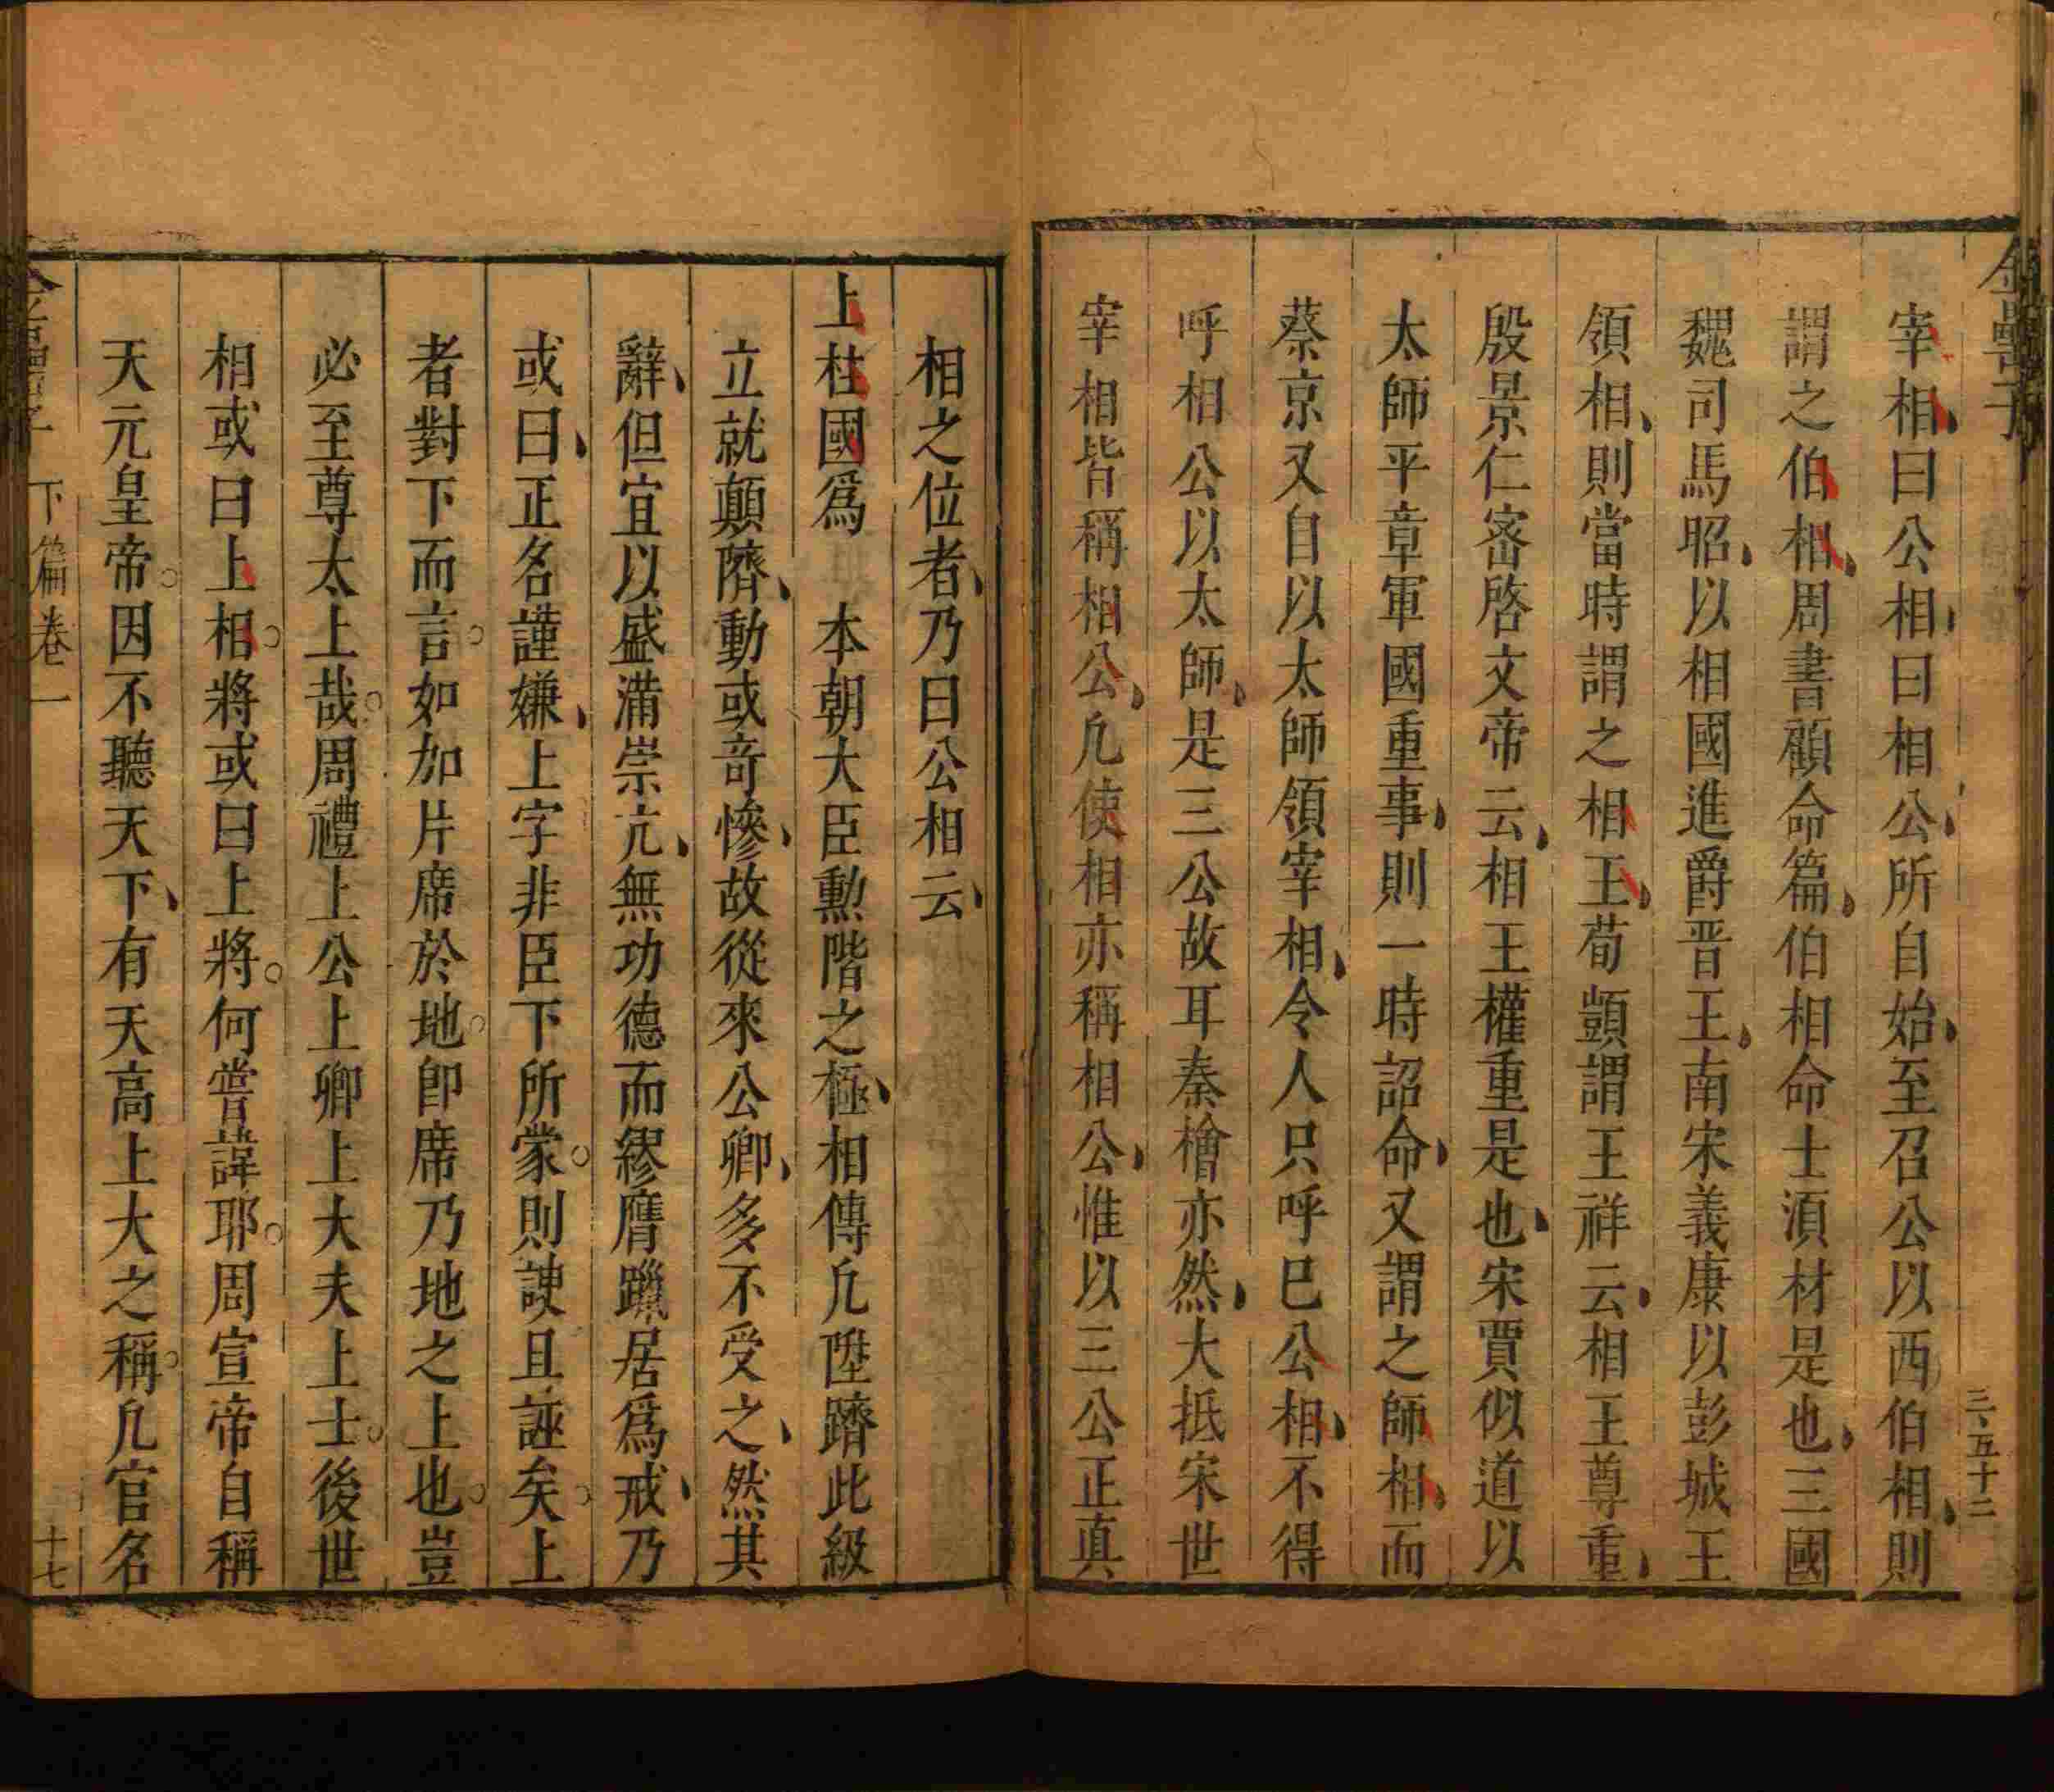 金罍子
三、五十二
宰相曰公相曰相公所自始至召公以西伯相則
謂之伯相周書顧命篇伯相命士湏材是也三國
魏司馬昭以相國進爵晋王南宋義康以彭城王
領相則當時謂之相王荀顗謂王祥云相王尊重
殷景仁宻啓文帝云相王權重是也宋賈似道以
太師平章軍國重事則一時詔命又謂之師相而
蔡京又自以太師領宰相令人只呼巳公相不得
呼相公以太師是三公故耳秦檜亦然大抵宋世
宰相皆稱相公凢使相亦稱相公惟以三公正真
相之位者乃曰公相云
上柱國爲　本朝大臣勲階之極相傳凢陞躋此級
立就顛隮動或竒慘故從來公卿多不受之然其
辭但宜以盛滿崇亢無功德而繆膺躐居爲戒乃
或曰正名謹嫌上字非臣下所蒙則諛且誣矣上
者對下而言如加片席於地即席乃地之上也豈
必至尊太上哉周禮上公上卿上大夫上士後世
相或曰上相將或曰上將何嘗諱耶周宣帝自稱
天元皇帝因不聽天下有天高上大之稱凢官名
下篇卷一
十七